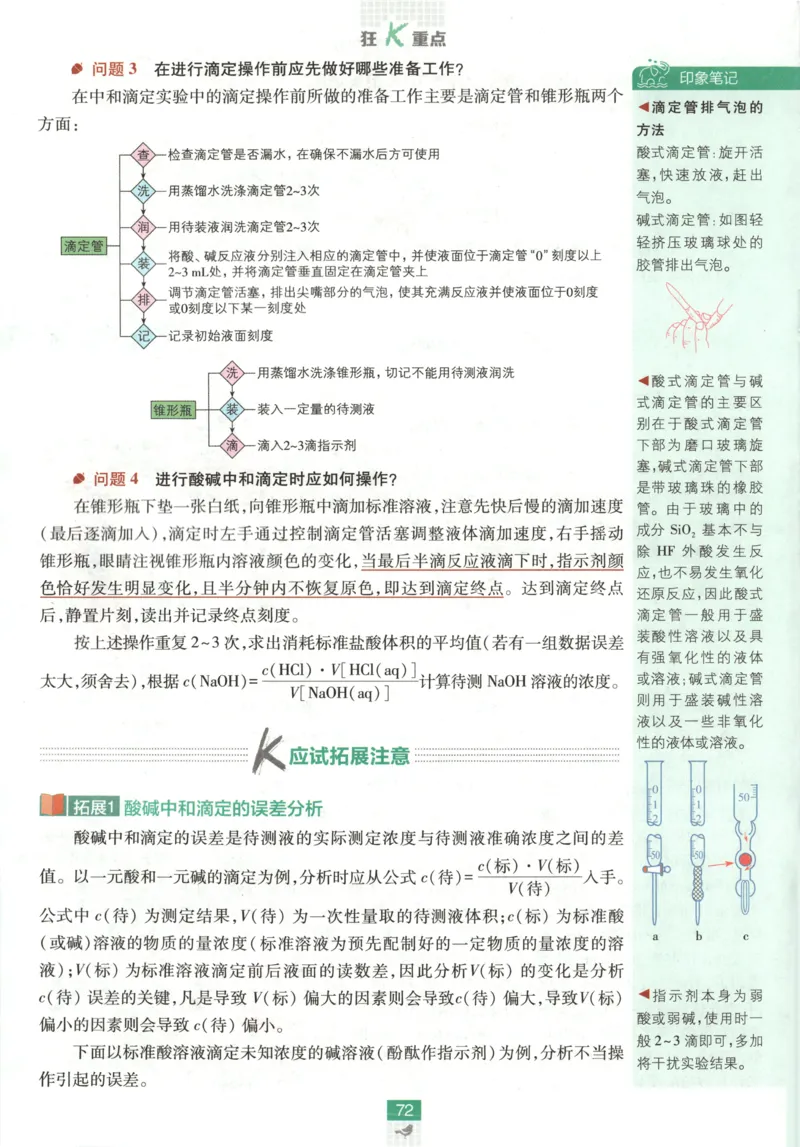 狂K重点
问题3 在进行滴定操作前应先做好哪些准备工作?
在中和滴定实验中的滴定操作前所做的准备工作主要是滴定管和锥形瓶两个
方面:
滴定管
查 检查滴定管是否漏水,在确保不漏水后方可使用
洗 用蒸馏水洗涤滴定管2~3次
润 用待装液润洗滴定管2~3次
装 将酸、碱反应液分别注入相应的滴定管中,并使液面位于滴定管“0”刻度以上
2~3 mL处,并将滴定管垂直固定在滴定管夹上
排 调节滴定管活塞,排出尖嘴部分的气泡,使其充满反应液并使液面位于0刻度
或0刻度以下某一刻度处
记 记录初始液面刻度
锥形瓶
洗 用蒸馏水洗涤锥形瓶,切记不能用待测液润洗
装 装入一定量的待测液
滴 滴入2~3滴指示剂
问题4 进行酸碱中和滴定时应如何操作?
在锥形瓶下垫一张白纸,向锥形瓶中滴加标准溶液,注意先快后慢的滴加速度
(最后逐滴加入),滴定时左手通过控制滴定管活塞调整液体滴加速度,右手摇动
锥形瓶,眼睛注视锥形瓶内溶液颜色的变化,当最后半滴反应液滴下时,指示剂颜
色恰好发生明显变化,且半分钟内不恢复原色,即达到滴定终点。达到滴定终点
后,静置片刻,读出并记录终点刻度。
按上述操作重复2~3次,求出消耗标准盐酸体积的平均值(若有一组数据误差
太大,须舍去),根据c(NaOH)=c(HCl)·V[HCl(aq)]/V[NaOH(aq)]计算待测NaOH溶液的浓度。
K应试拓展注意
拓展1 酸碱中和滴定的误差分析
酸碱中和滴定的误差是待测液的实际测定浓度与待测液准确浓度之间的差
值。以一元酸和一元碱的滴定为例,分析时应从公式c(待)=c(标)·V(标)/V(待)入手。
公式中c(待)为测定结果,V(待)为一次性量取的待测液体积;c(标)为标准酸
(或碱)溶液的物质的量浓度(标准溶液为预先配制好的一定物质的量浓度的溶
液);V(标)为标准溶液滴定前后液面的读数差,因此分析V(标)的变化是分析
c(待)误差的关键,凡是导致V(标)偏大的因素则会导致c(待)偏大,导致V(标)
偏小的因素则会导致c(待)偏小。
下面以标准酸溶液滴定未知浓度的碱溶液(酚酞作指示剂)为例,分析不当操
作引起的误差。
印象笔记
◀滴定管排气泡的
方法
酸式滴定管:旋开活
塞,快速放液,赶出
气泡。
碱式滴定管:如图轻
轻挤压玻璃球处的
胶管排出气泡。
◀酸式滴定管与碱
式滴定管的主要区
别在于酸式滴定管
下部为磨口玻璃旋
塞,碱式滴定管下部
是带玻璃珠的橡胶
管。由于玻璃中的
成分SiO₂基本不与
除HF外酸发生反
应,也不易发生氧化
还原反应,因此酸式
滴定管一般用于盛
装酸性溶液以及具
有强氧化性的液体
或溶液;碱式滴定管
则用于盛装碱性溶
液以及一些非氧化
性的液体或溶液。
0 0 50
1 1
2 2
50 50
a b c
◀指示剂本身为弱
酸或弱碱,使用时一
般2~3滴即可,多加
将干扰实验结果。
72